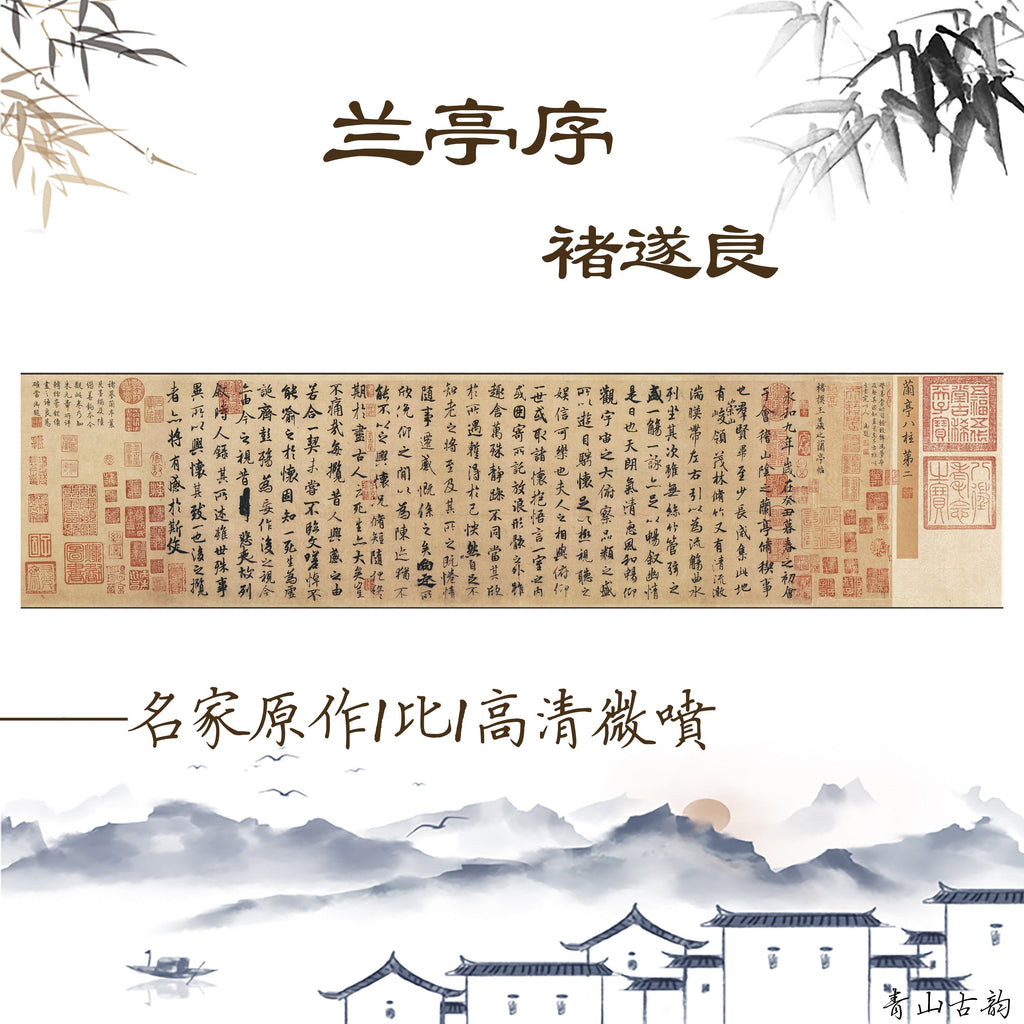 兰亭序
褚遂良
蘭亭八柱第二
褚摸王羲之蘭亭帖
永和九年歲在癸丑暮春之初會
于會稽山陰之蘭亭脩稧事
也羣賢畢至少長咸集此地
有崇山峻領茂林脩竹又有清流激
湍暎帶左右引以為流觴曲水
列坐其次雖無絲竹管弦之
盛一觴一詠亦足以暢叙幽情
是日也天朗氣清惠風和暢仰
觀宇宙之大俯察品類之盛
所以遊目騁懷足以極視聽之
娛信可樂也夫人之相與俯仰
一世或取諸懷抱悟言一室之內
或因寄所託放浪形骸之外雖
趣舍萬殊靜躁不同當其欣
於所遇暫得於己怏然自足不
知老之將至及其所之既惓情
隨事遷感慨係之矣向之所
欣俛仰之閒以為陳迹猶不
能不以之興懷況脩短隨化終
期於盡古人云死生亦大矣豈
不痛哉每攬昔人興感之由
若合一契未嘗不臨文嗟悼不
能喻之於懷固知一死生為虛
誕齊彭殤為妄作後之視今
亦由今之視昔悲夫故列
敘時人錄其所述雖世殊事
異所以興懷其致一也後之攬
者亦將有感於斯文
名家原作/1:1/高清微噴
青山古韵